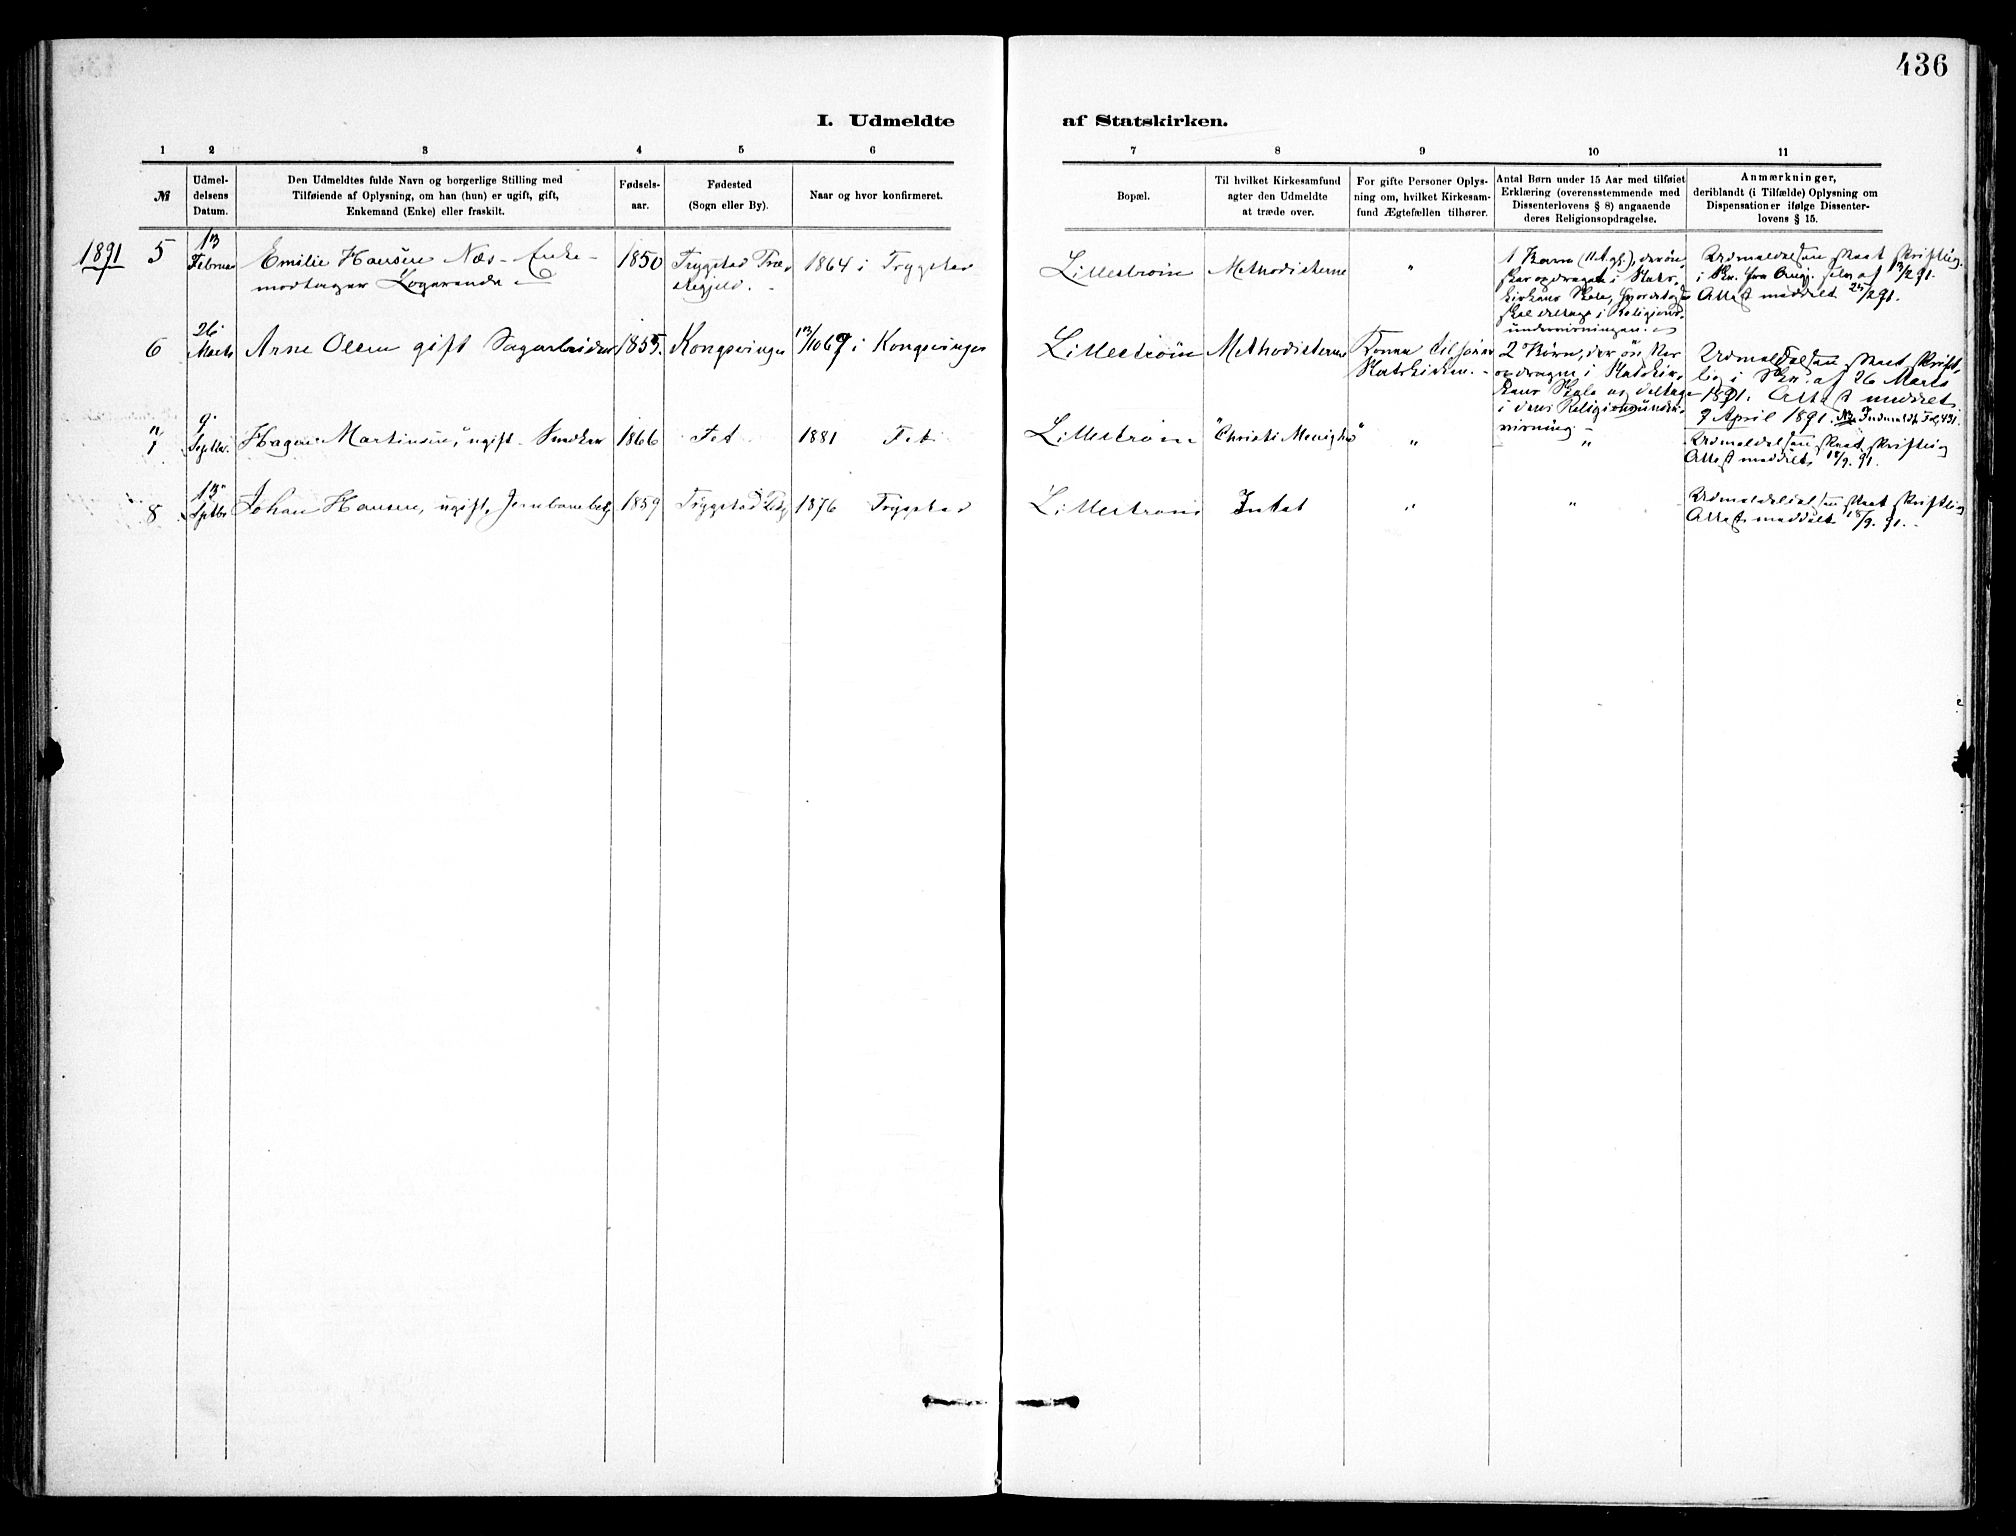 436
I. Udmeldte af Statskirken.
1 2 3 4 5 6 7 8 9 10 11
№
Udmel-
delsens
Datum.
Den Udmeldtes fulde Navn og borgerlige Stilling med
Tilføiende af Oplysning, om han (hun) er ugift, gift,
Enkemand (Enke) eller fraskilt.
Fødsels-
aar.
Fødested
(Sogn eller By).
Naar og hvor konfirmeret.
Bopæl.
Til hvilket Kirkesamfund
agter den Udmeldte
at træde over.
For gifte Personer Oplys-
ning om, hvilket Kirkesam-
fund Ægtefællen tilhører.
Antal Børn under 15 Aar med tilføiet
Erklæring (overensstemmende med
Dissenterlovens § 8) angaaende
deres Religionsopdragelse.
Anmærkninger,
deriblandt (i Tilfælde) Oplysning om
Dispensationer ifølge Dissenter-
lovens § 15.
1891
5
13
Februar
Emilie Hansen Næs - Enke -
modtager Logerende
1850
Trygstad Præ-
stegjeld. -
1864 i Trygstad
Lillestrøm
Methodisterne
"
1 Barn (11 A. gl.), der øn-
sker opdraget i Stats-
kirkens Skole,
skal deltage i Religions-
undervisningen.
Udmeldelsen skeet skriftlig
i Skr. fra 13/2 91.
Attest meddelt 25/2 91.
6
26
Marts
Arne Olsen gift Sagarbeider
1855.
Kongsvinger
13/10 69 i Kongsvinger
Lillestrøm
Methodisterne
Konen tilhører
Statskirken. -
2 Børn, der ønsker
opdragne i Statskir-
kens Skole og deltage
i dens Religionsunder-
visning -
Udmeldelsen skeet skrift-
lig i Skr. af 26 Marts
1891. Attest meddelt
9 April 1891. Indmeldt Fol. 431.
7
9
Septbr.
Hagen Martinsen, ugift - Snedker
1866
Fet
1881 Fet
Lillestrøm
"Christi Menighed"
"
"
Udmeldelsen skeet skriftlig
Attest meddelt 18/9. 91.
8
13
Septbr
Johan Hansen, ugift, Jernbanebetj.
1859
Trygstad
1876 Trygstad
Lillestrøm
Intet
"
"
Udmeldelsen skeet skriftlig
Attest meddelt 18/9. 91. -